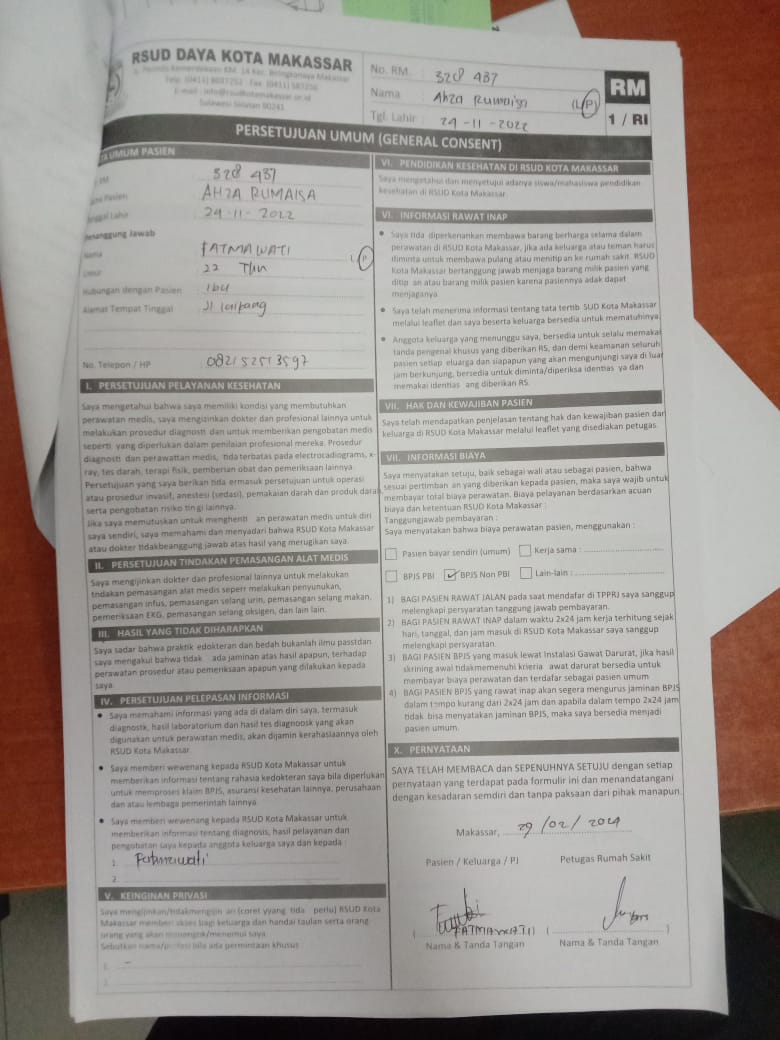 RSUD DAYA KOTA MAKASSAR
Sulawesi Selatan 90241
No. RM. : 328 937
Nama : Ahza Rumaisa (L/P)
Tgl. Lahir : 29-11-2022
RM
1 / RI
PERSETUJUAN UMUM (GENERAL CONSENT)
UMUM PASIEN
RM : 328 937
Pasien : AHZA RUMAISA
Lahir : 29-11-2022
Penanggung Jawab
Nama : FATMAWATI (P)
Umur : 22 Thn
Hubungan dengan Pasien : Ibu
Alamat Tempat Tinggal : Jl laipang
No. Telepon / HP : 082152513597
I. PERSETUJUAN PELAYANAN KESEHATAN
Saya mengetahui bahwa saya memiliki kondisi yang membutuhkan
perawatan medis, saya mengizinkan dokter dan profesional lainnya untuk
melakukan prosedur diagnosti dan untuk memberikan pengobatan medis
seperti yang diperlukan dalam penilaian profesional mereka. Prosedur
diagnosti dan perawattan medis, tida terbatas pada electrocadiograms, x-
ray, tes darah, terapi fisik, pemberian obat dan pemeriksaan lainnya.
Persetujuan yang saya berikan tida ermasuk persetujuan untuk operasi
atau prosedur invasif, anestesi (sedasi), pemakaian darah dan produk darah
serta pengobatan risiko tingi lainnya.
Jika saya memutuskan untuk menghenti an perawatan medis untuk diri
saya sendiri, saya memahami dan menyadari bahwa RSUD Kota Makassar
atau dokter tidakbeanggung jawab atas hasil yang merugikan saya.
II. PERSETUJUAN TINDAKAN PEMASANGAN ALAT MEDIS
Saya mengijinkan dokter dan profesional lainnya untuk melakukan
tindakan pemasangan alat medis seperr melakukan penyunukan,
pemasangan infus, pemasangan selang urin, pemasangan selang makan,
pemeriksaan EKG, pemasangan selang oksigen, dan lain lain.
III. HASIL YANG TIDAK DIHARAPKAN
Saya sadar bahwa praktik edokteran dan bedah bukanlah ilmu passtdan
saya mengakui bahwa tidak ada jaminan atas hasil apapun, terhadap
perawatan prosedur atau pemeriksaan apapun yang dilakukan kepada
saya.
IV. PERSETUJUAN PELEPASAN INFORMASI
• Saya memahami informasi yang ada di dalam diri saya, termasuk
diagnostk, hasil laboratorium dan hasil tes diagnoosk yang akan
digunakan untuk perawatan medis, akan dijamin kerahasiaannya oleh
RSUD Kota Makassar.
• Saya memberi wewenang kepada RSUD Kota Makassar untuk
memberikan informasi tentang rahasia kedokteran saya bila diperlukan
untuk memproses klaim BPJS, asuransi kesehatan lainnya, perusahaan
dan atau lembaga pemerintah lainnya
• Saya memberi wewenang kepada RSUD Kota Makassar untuk
memberikan informasi tentang diagnosis, hasil pelayanan dan
pengobatan saya kepada anggota keluarga saya dan kepada :
1. Fatmawati
2.
V. KEINGINAN PRIVASI
Saya mengijinkan/tidakmengijin an (coret yyang tida perlu) RSUD Kota
Makassar memberi akses bagi keluarga dan handai taulan serta orang
orang yang akan menengok/menemui saya.
Sebutkan nama/profesi bila ada permintaan khusus :
1. –
2.
VI. PENDIDIKAN KESEHATAN DI RSUD KOTA MAKASSAR
Saya mengetahui dan menyetujui adanya siswa/mahasiswa pendidikan
kesehatan di RSUD Kota Makassar.
VI. INFORMASI RAWAT INAP
• Saya tida diperkenankan membawa barang berharga selama dalam
perawatan di RSUD Kota Makassar, jika ada keluarga atau teman harus
diminta untuk membawa pulang atau menitip an ke rumah sakit. RSUD
Kota Makassar bertanggung jawab menjaga barang milik pasien yang
ditip an atau barang milik pasien karena pasiennya adak dapat
menjaganya.
• Saya telah menerima informasi tentang tata tertib SUD Kota Makassar
melalui leaflet dan saya beserta keluarga bersedia untuk mematuhinya
• Anggota keluarga yang menunggu saya, bersedia untuk selalu memakai
tanda pengenal khusus yang diberikan RS, dan demi keamanan seluruh
pasien setiap eluarga dan siapapun yang akan mengunjungi saya di luar
jam berkunjung, bersedia untuk diminta/diperiksa identias ya dan
memakai identias ang diberikan RS.
VII. HAK DAN KEWAJIBAN PASIEN
Saya telah mendapatkan penjelasan tentang hak dan kewajiban pasien dan
keluarga di RSUD Kota Makassar melalui leaflet yang disediakan petugas.
VII. INFORMASI BIAYA
Saya menyatakan setuju, baik sebagai wali atau sebagai pasien, bahwa
sesuai pertimban an yang diberikan kepada pasien, maka saya wajib untuk
membayar total biaya perawatan. Biaya pelayanan berdasarkan acuan
biaya dan ketentuan RSUD Kota Makassar :
Tanggungjawab pembayaran :
Saya menyatakan bahwa biaya perawatan pasien, menggunakan :
Pasien bayar sendiri (umum) Kerja sama :
BPJS PBI ✓ BPJS Non PBI Lain-lain :
1) BAGI PASIEN RAWAT JALAN pada saat mendafar di TPPRJ saya sanggup
melengkapi persyaratan tanggung jawab pembayaran.
2) BAGI PASIEN RAWAT INAP dalam waktu 2x24 jam kerja terhitung sejak
hari, tanggal, dan jam masuk di RSUD Kota Makassar saya sanggup
melengkapi persyaratan.
3) BAGI PASIEN BPJS yang masuk lewat Instalasi Gawat Darurat, jika hasil
skrining awal tidakmemenuhi krieria awat darurat bersedia untuk
membayar biaya perawatan dan terdafar sebagai pasien umum
4) BAGI PASIEN BPJS yang rawat inap akan segera mengurus jaminan BPJS
dalam tempo kurang dari 2x24 jam dan apabila dalam tempo 2x24 jam
tidak bisa menyatakan jaminan BPJS, maka saya bersedia menjadi
pasien umum.
X. PERNYATAAN
SAYA TELAH MEMBACA dan SEPENUHNYA SETUJU dengan setiap
pernyataan yang terdapat pada formulir ini dan menandatangani
dengan kesadaran semdiri dan tanpa paksaan dari pihak manapun.
Makassar, 29/02/2024
Pasien / Keluarga / PJ Petugas Rumah Sakit
( FATMAWATI ) ( )
Nama & Tanda Tangan Nama & Tanda Tangan